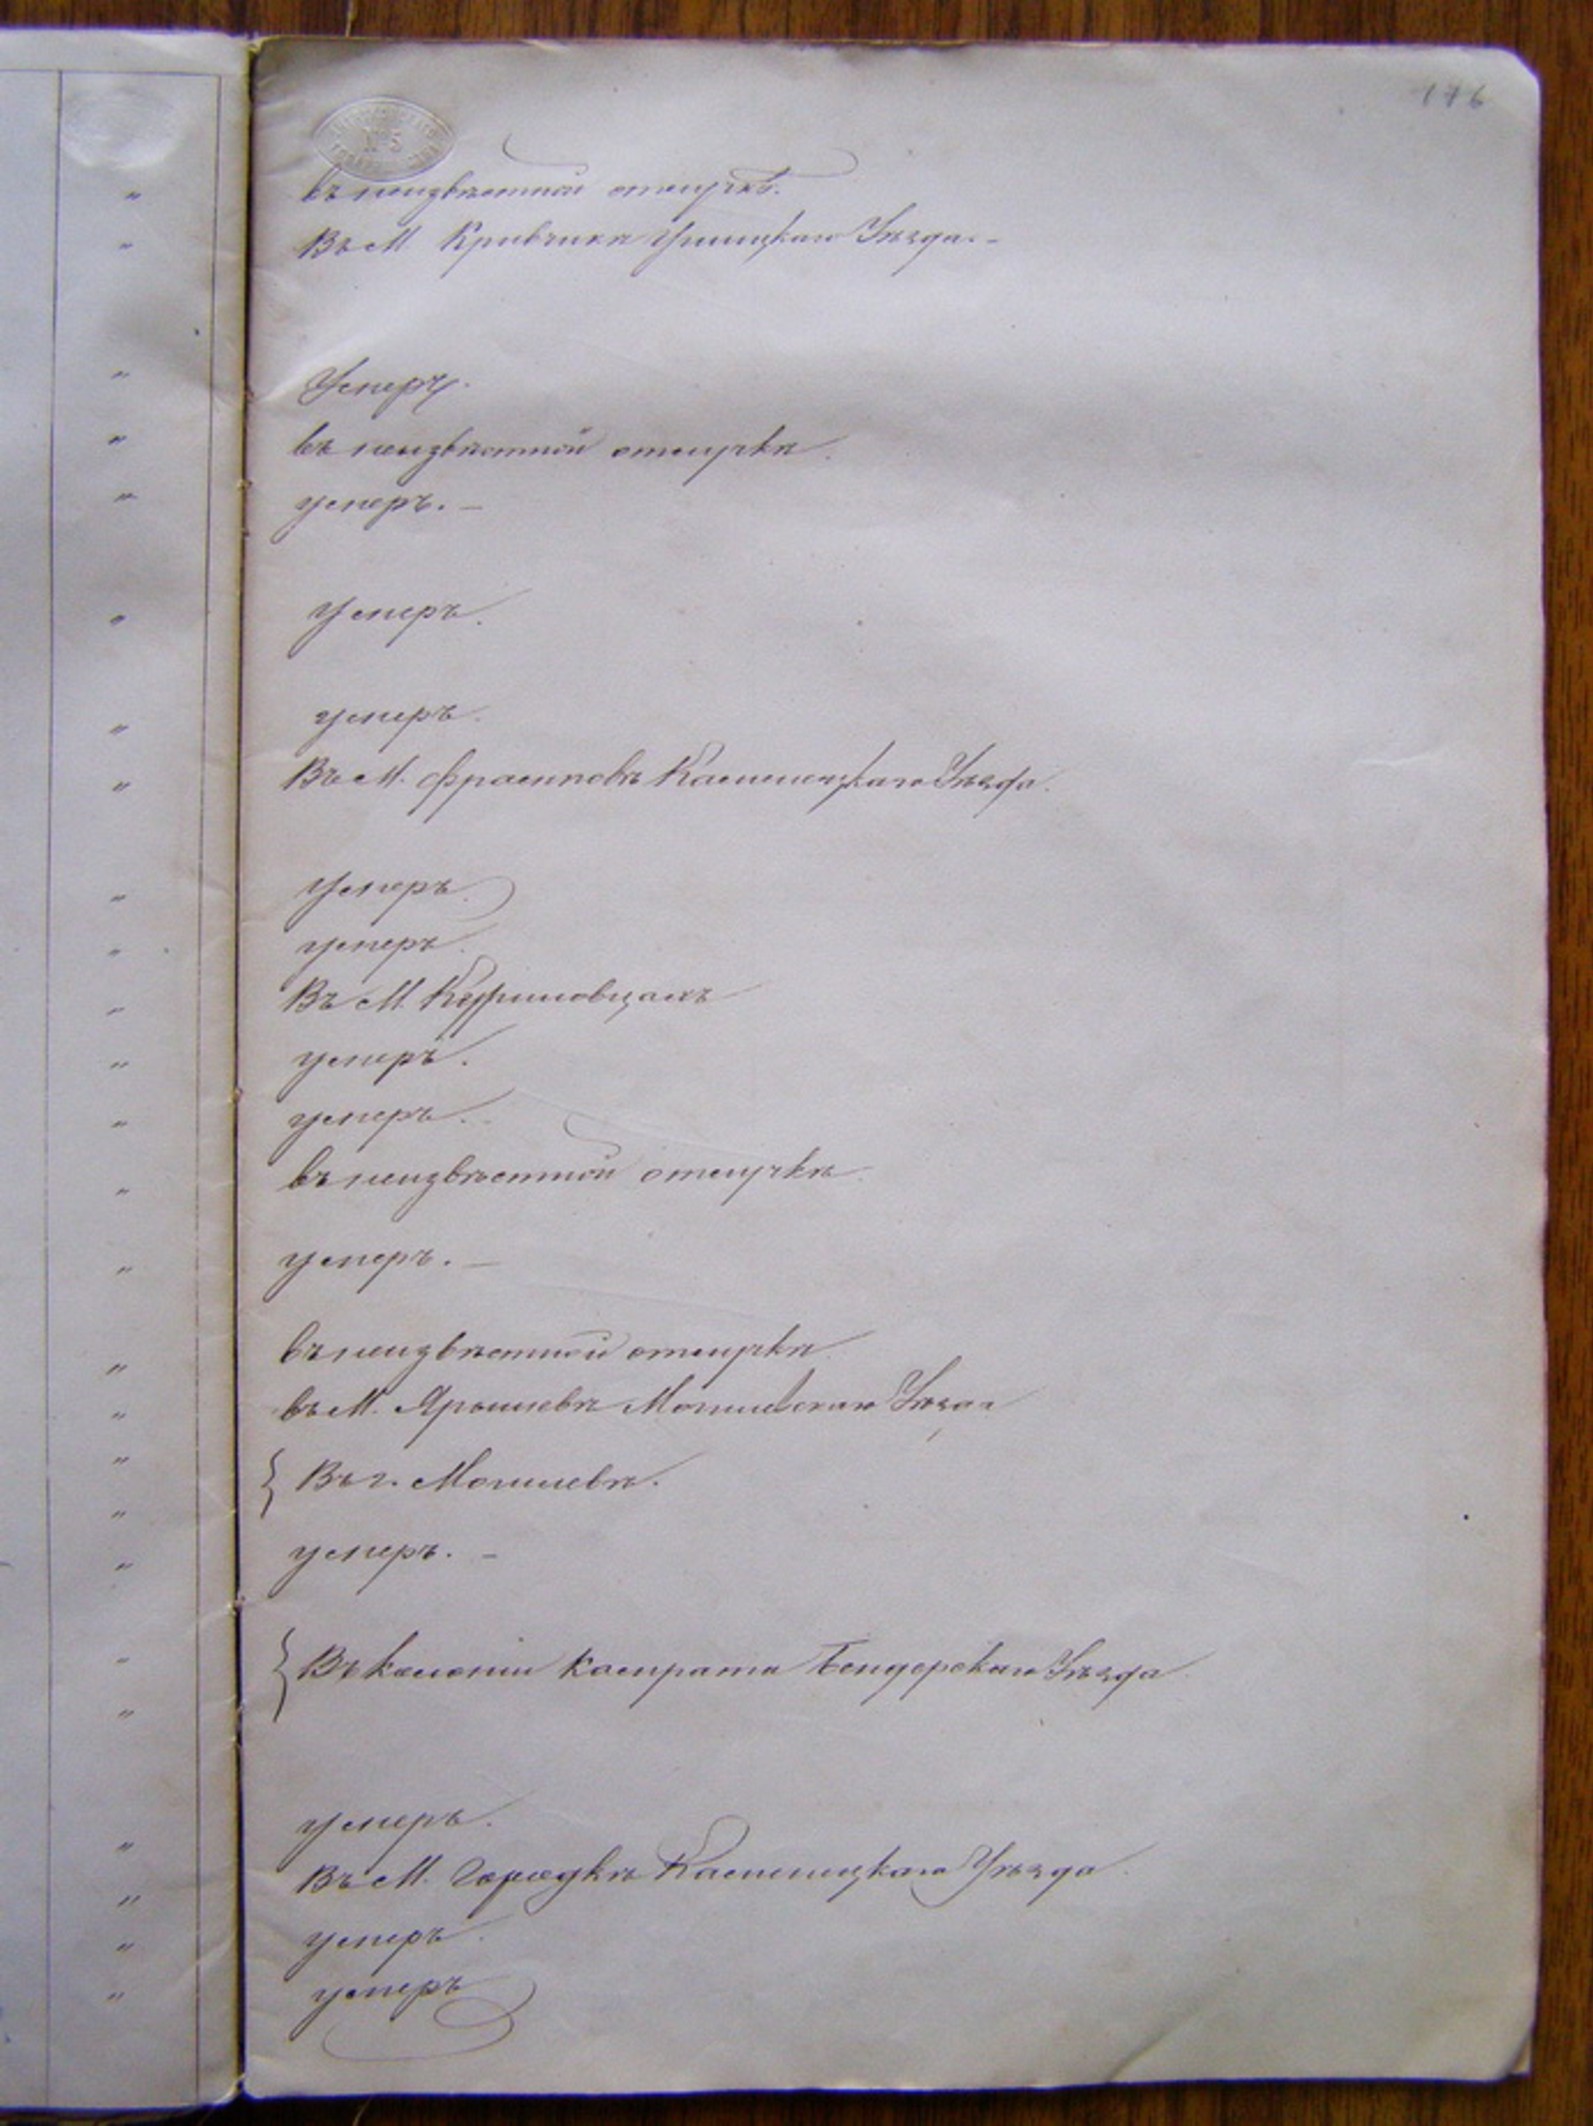 176
№ 5
въ неизвѣстной отлучкѣ.
Въ М. Кривчикѣ Ушицкаго Уѣзда. –
Умеръ.
въ неизвѣстной отлучкѣ.
умеръ. –
Умеръ.
умеръ.
Въ М. Фрамповѣ Каменецкаго Уѣзда.
Умеръ.
умеръ.
Въ М.
умеръ.
умеръ.
въ неизвѣстной отлучкѣ.
умеръ. –
въ неизвѣстной отлучкѣ.
въ М. Ярышевѣ Могилевскаго Уѣзда
Въ г. Могилевѣ.
умеръ. –
Въ колоніи Комрата Бендерскаго Уѣзда.
умеръ.
Въ М. Городкѣ Каменецкаго Уѣзда.
умеръ.
умеръ